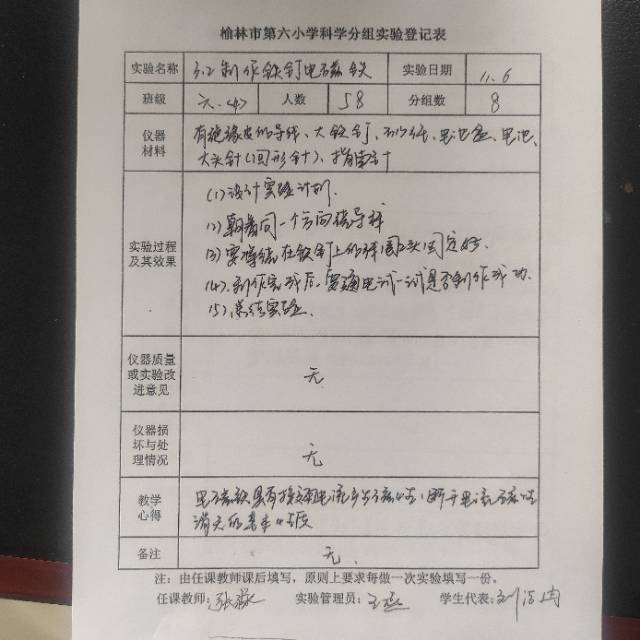 榆林市第六小学科学分组实验登记表
实验名称 3.2 制作铁钉电磁铁 实验日期 11.6
班级 六.(4) 人数 58 分组数 8
仪器材料 有绝缘皮的导线、大铁钉、电池盒、电池、
大头针(回形针)、指南针
实验过程及其效果
(1)设计实验计划.
(2)朝着同一个方向绕导线
(3)要将绕在铁钉上的线圈两头固定好.
(4).制作完成后,要通电试一试是否制作成功.
(5)总结实验.
仪器质量或实验改进意见 无
仪器损坏与处理情况 无
教学心得 电磁铁具有接通电流产生磁性,断开电流磁性
消失的基本性质
备注 无.
注:由任课教师课后填写,原则上要求每做一次实验填写一份。
任课教师: 张 实验管理员: 王 学生代表: 刘